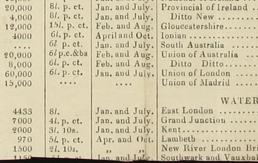 20,000 8l. p. ct. Jan. and July. Provincial of Ireland
4,000 8l. p. ct. Jan. and July. Ditto New
12,000 15l. p. ct. Feb. and Aug. Gloucestershire
4000 6l. p. ct. April and Oct. Ionian
.... .... South Australia
20,000 6l p.c.&ba Feb. and Aug. Union of Australia
8,000 6l. p. ct. Feb. and Aug. Ditto Ditto
60,000 6l. p. ct. Jan. and July. Union of London
15,000 Union of Madrid
WATER
4433 8l. Jan. and July. East London
7000 4l. p. ct. Jan. and July. Grand Junction
2000 3l. 10s. Jan. and July. Kent
970 5l. p. ct. Apr. and Oct. Lambeth
1500 2l. 10s. New River London Bri
Jan. and July. Southwark and Vauxhal